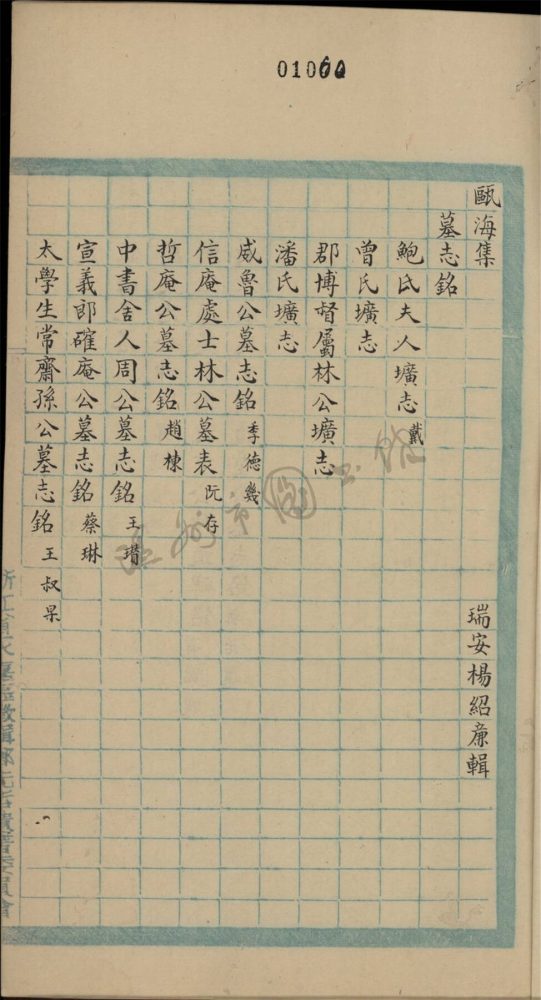 01060
甌海集
瑞安楊紹廉輯
墓志銘
鮑氏夫人壙志 戴
曾氏壙志
郡博督屬林公壙志
潘氏壙志
威魯公墓志銘 季德幾
信庵處士林公墓表 阮存
哲庵公墓志銘 趙棟
中書舍人周公墓志銘 王瓚
宣義郎確庵公墓志銘 蔡琳
太學生常齋孫公墓志銘 王叔杲
溫州市圖書館